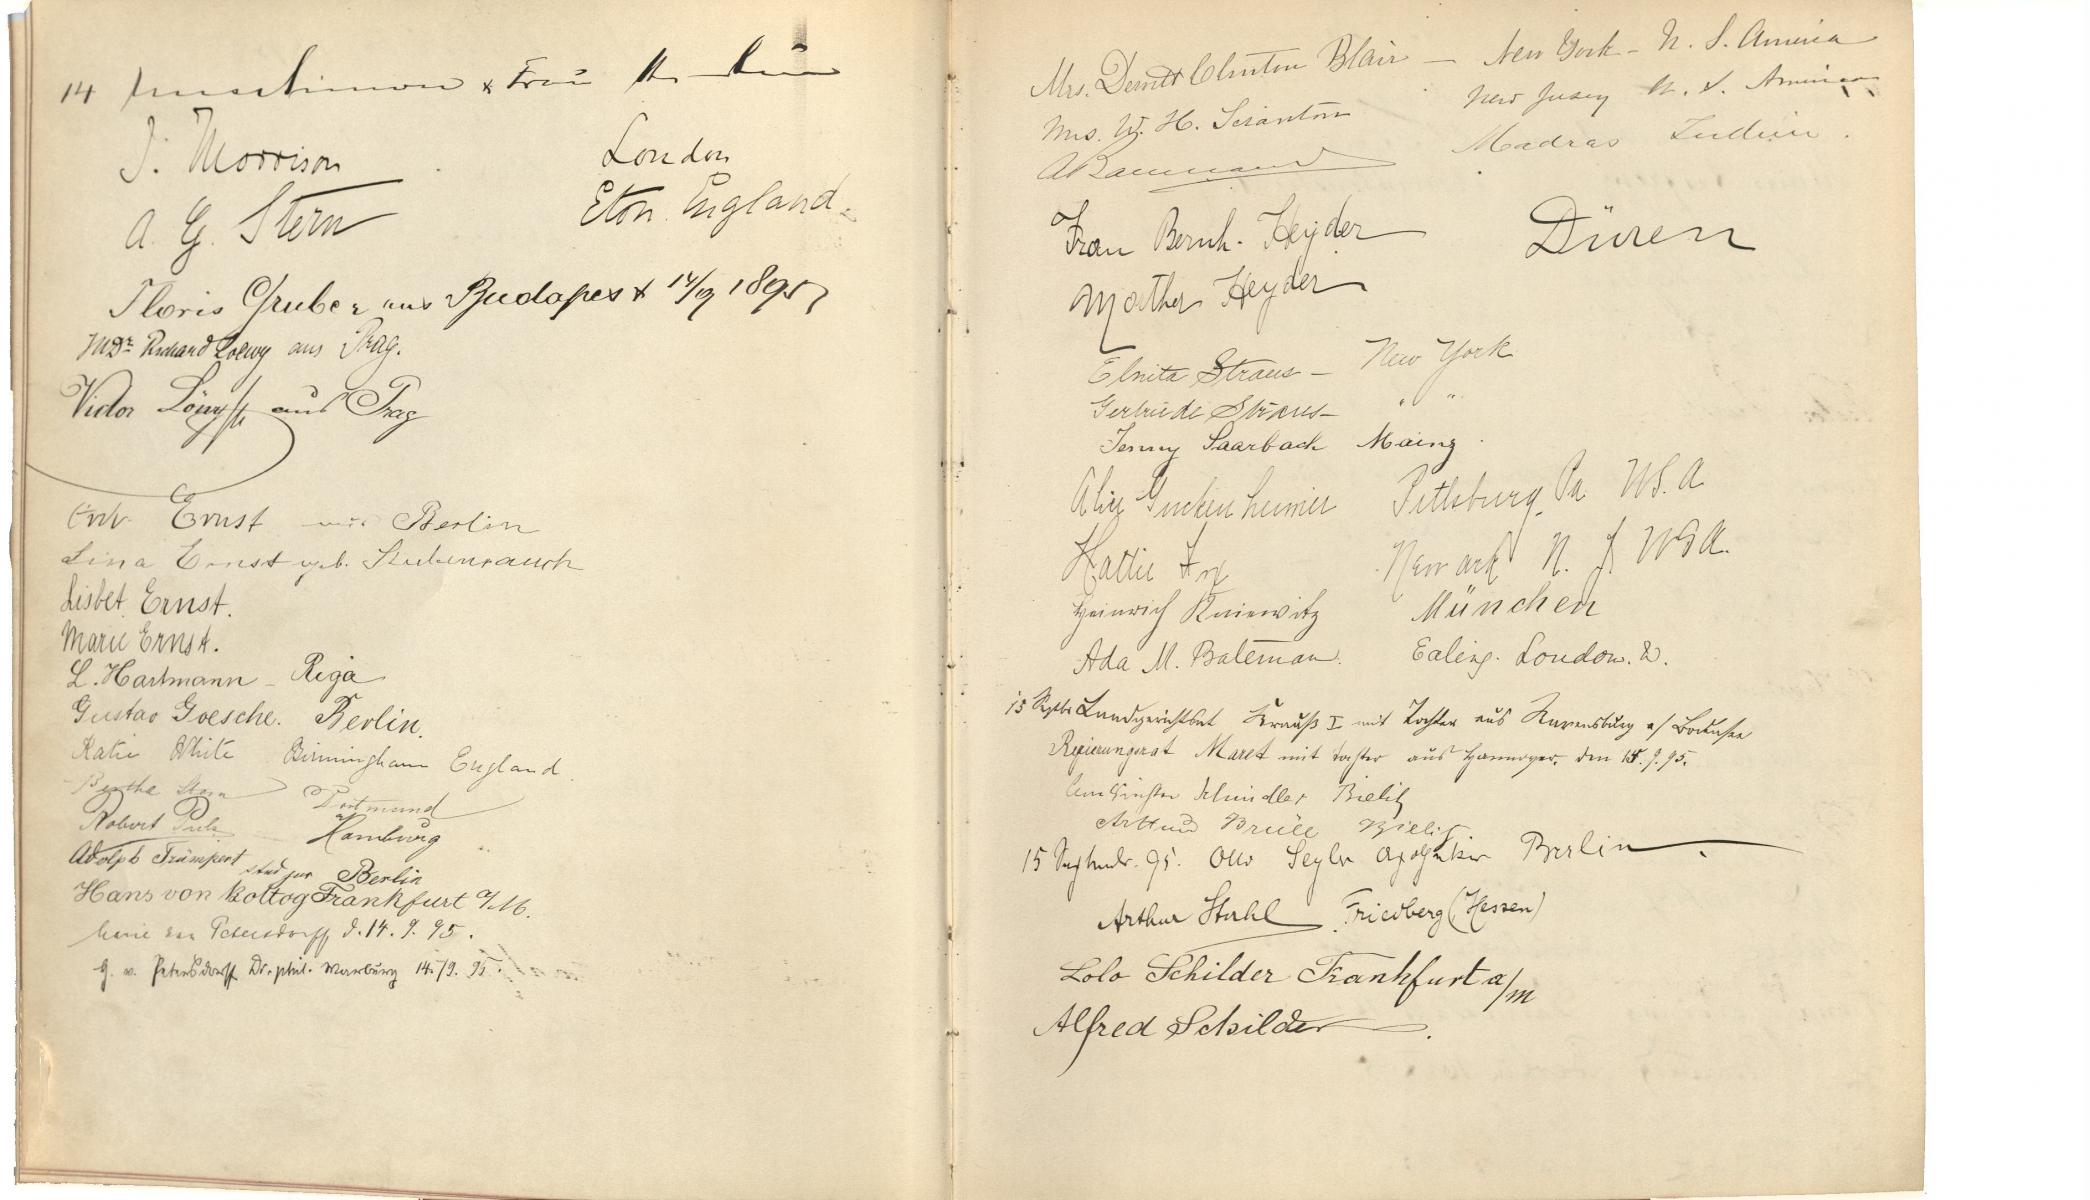 14 & Frau
J. Morrison London
A. G. Stern Eton England.
Floris Gruber aus Budapest 14/9 1895
MDr Richard Loewy aus Prag.
Victor Löwy aus Prag
Ernst aus Berlin
Lina Ernst geb. Stubenrauch
Lisbet Ernst.
Marie Ernst.
L. Hartmann - Riga
Gustav Goesche. Berlin.
Katie White Birmingham England.
Bertha Stern Dortmund
Robert Hamburg
Adolph Trümpert stud jur Berlin
Hans von Frankfurt a/M.
Marie von Petersdorff d. 14. 9. 95.
G. v. Petersdorff Dr. phil. Marburg 14./9. 95.
Mrs. Dewitt Clinton Blair — New York - U. S. America
Mrs. W. H. Scranton New Jersey U. S. America
Madras Indien.
Frau Bernh. Heyder Düren
Heyder
Elnita Straus - New York
Gertrude Straus - " "
Jenny Saarbach Mainz
Alice Guckenheimer Pittsburg, Pa U.S.A
Hattie Newark N. J. U.S.A.
Heinrich München
Ada M. Bateman. Ealing. London. W.
15 Septbr Landgerichtsrat Krauß I mit Tochter aus Ravensburg a/ Bodensee
Regierungsrat Maret mit Tochter aus Hannover. den 15. 9. 95.
Schindler Bielitz
Arthur Brüll Bielitz
15 September. 95. Otto Seyler Apotheker Berlin
Arthur Stahl Friedberg (Hessen)
Lolo Schilder Frankfurt a/m
Alfred Schilder.